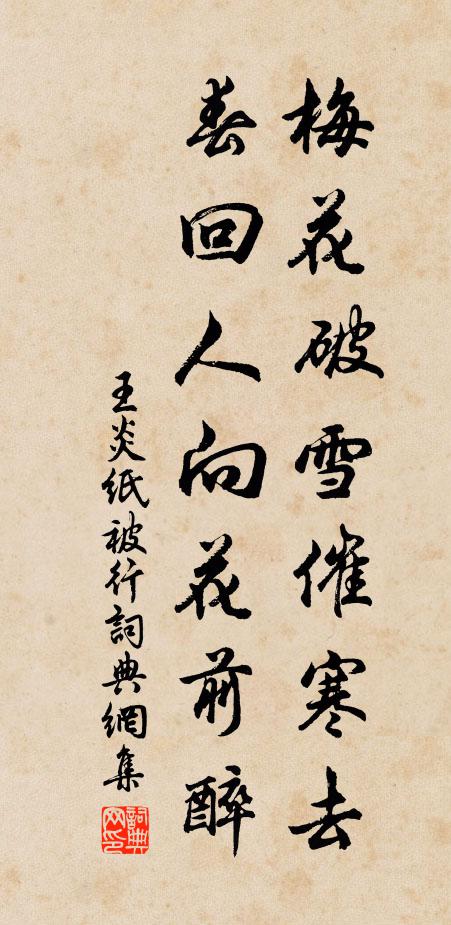 梅花破雪催寒去
春回人向花前醉
王炎紙被行詞典網集
詞典網印